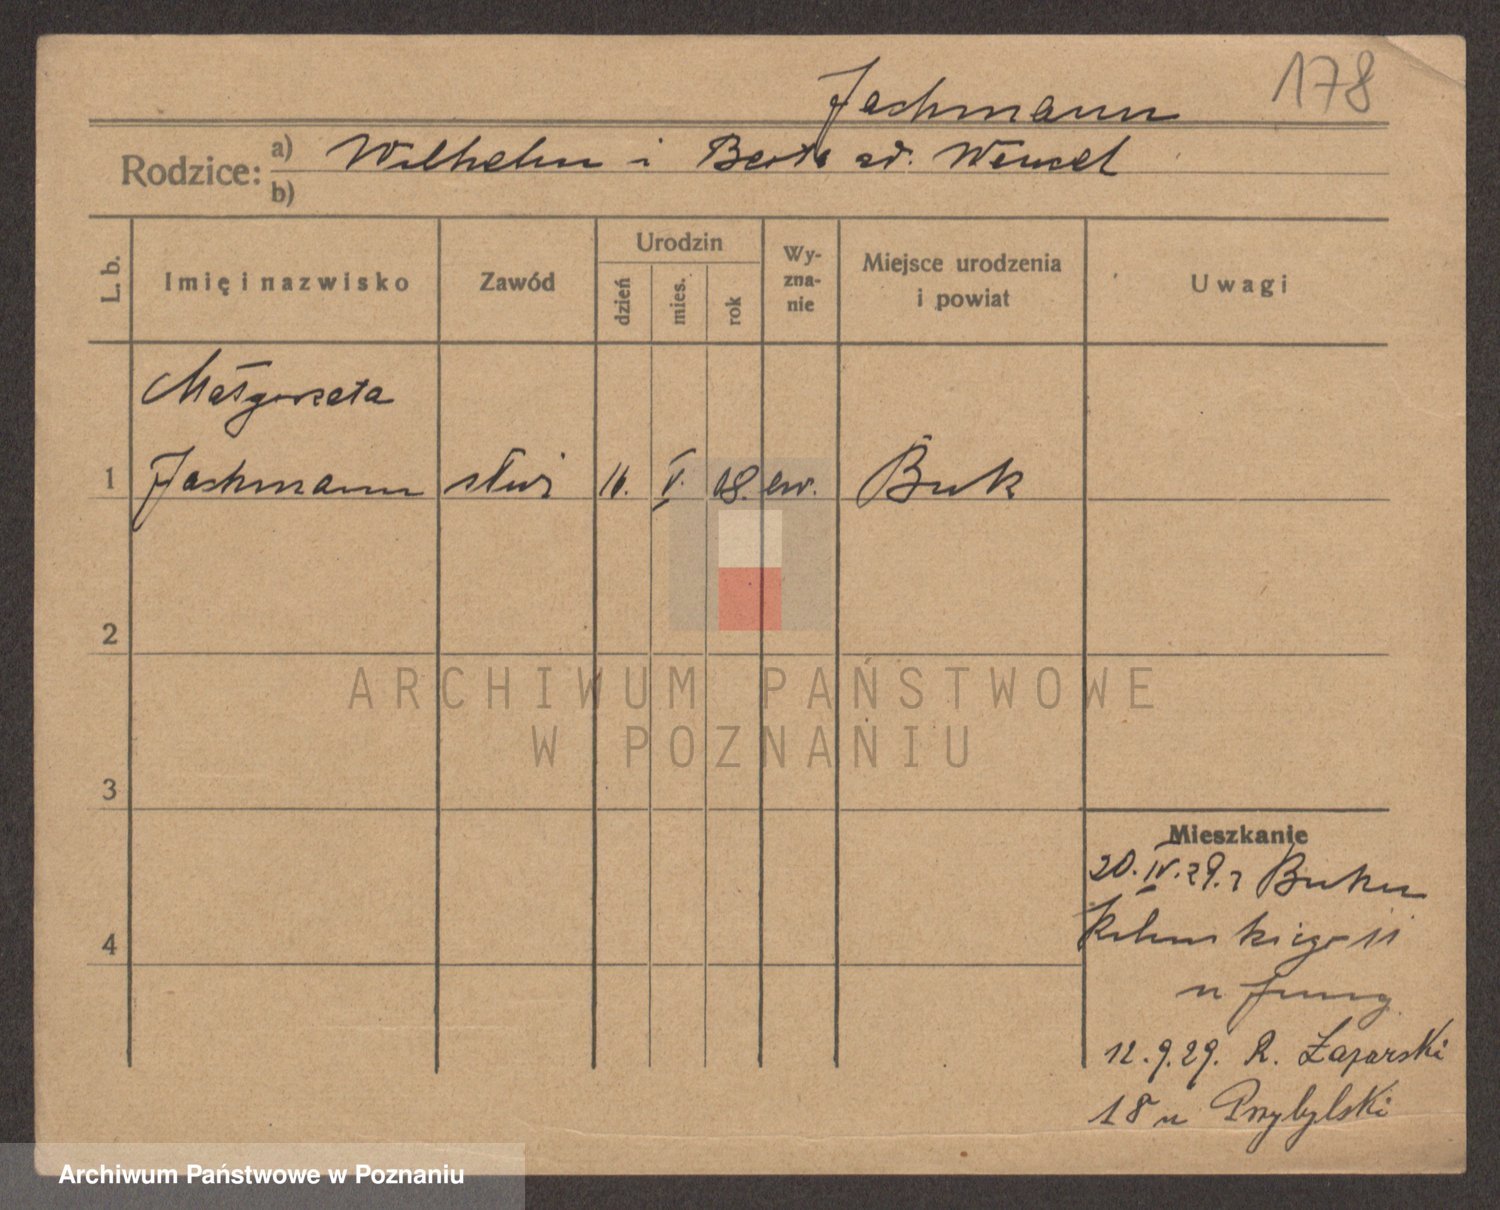 178
Jachmann
Rodzice: a) Wilhelm i Berta zd. Wenzel
b)
L. b. Imię i nazwisko Zawód Urodzin dzień mies. rok Wy-zna-nie Miejsce urodzenia i powiat Uwagi
Małgorzata
1 Jachmann służ 16. V. 08. ew. Buk
2
3
4
Mieszkanie
20. IV. 29. z Buku
11
u Jung
12.9.29. R. Łazarski
18 u Przybylski
ARCHIWUM PAŃSTWOWE
W POZNANIU
Archiwum Państwowe w Poznaniu